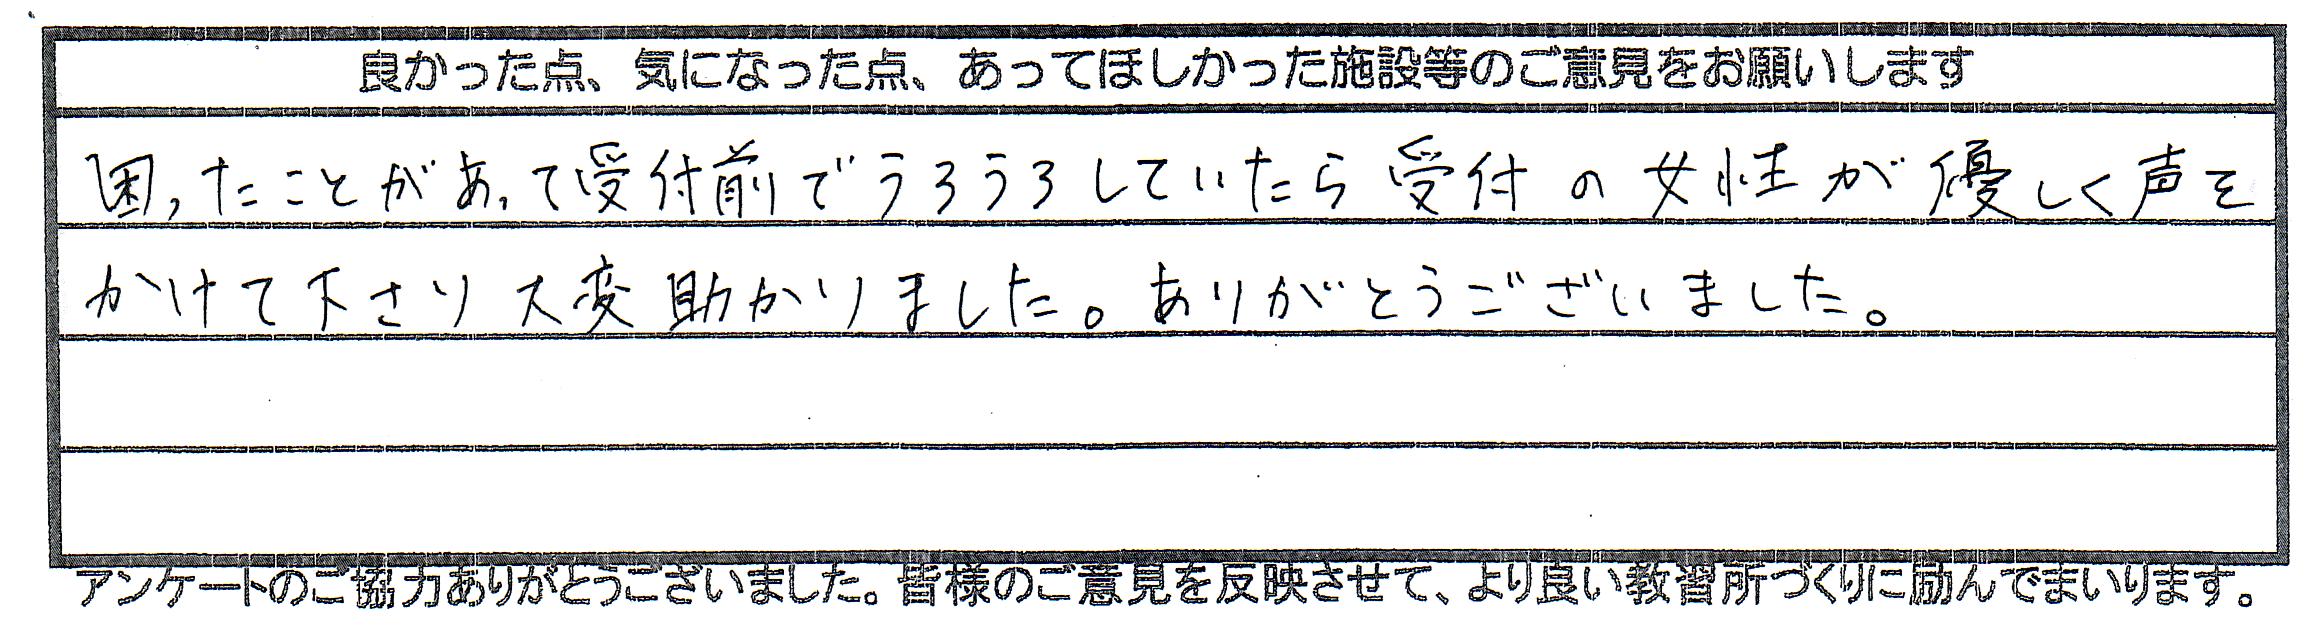 良かった点、気になった点、あってほしかった施設等のご意見をお願いします
困ったことがあって受付前でうろうろしていたら受付の女性が優しく声を
かけて下さり大変助かりました。ありがとうございました。
アンケートのご協力ありがとうございました。皆様のご意見を反映させて、より良い教習所づくりに励んでまいります。